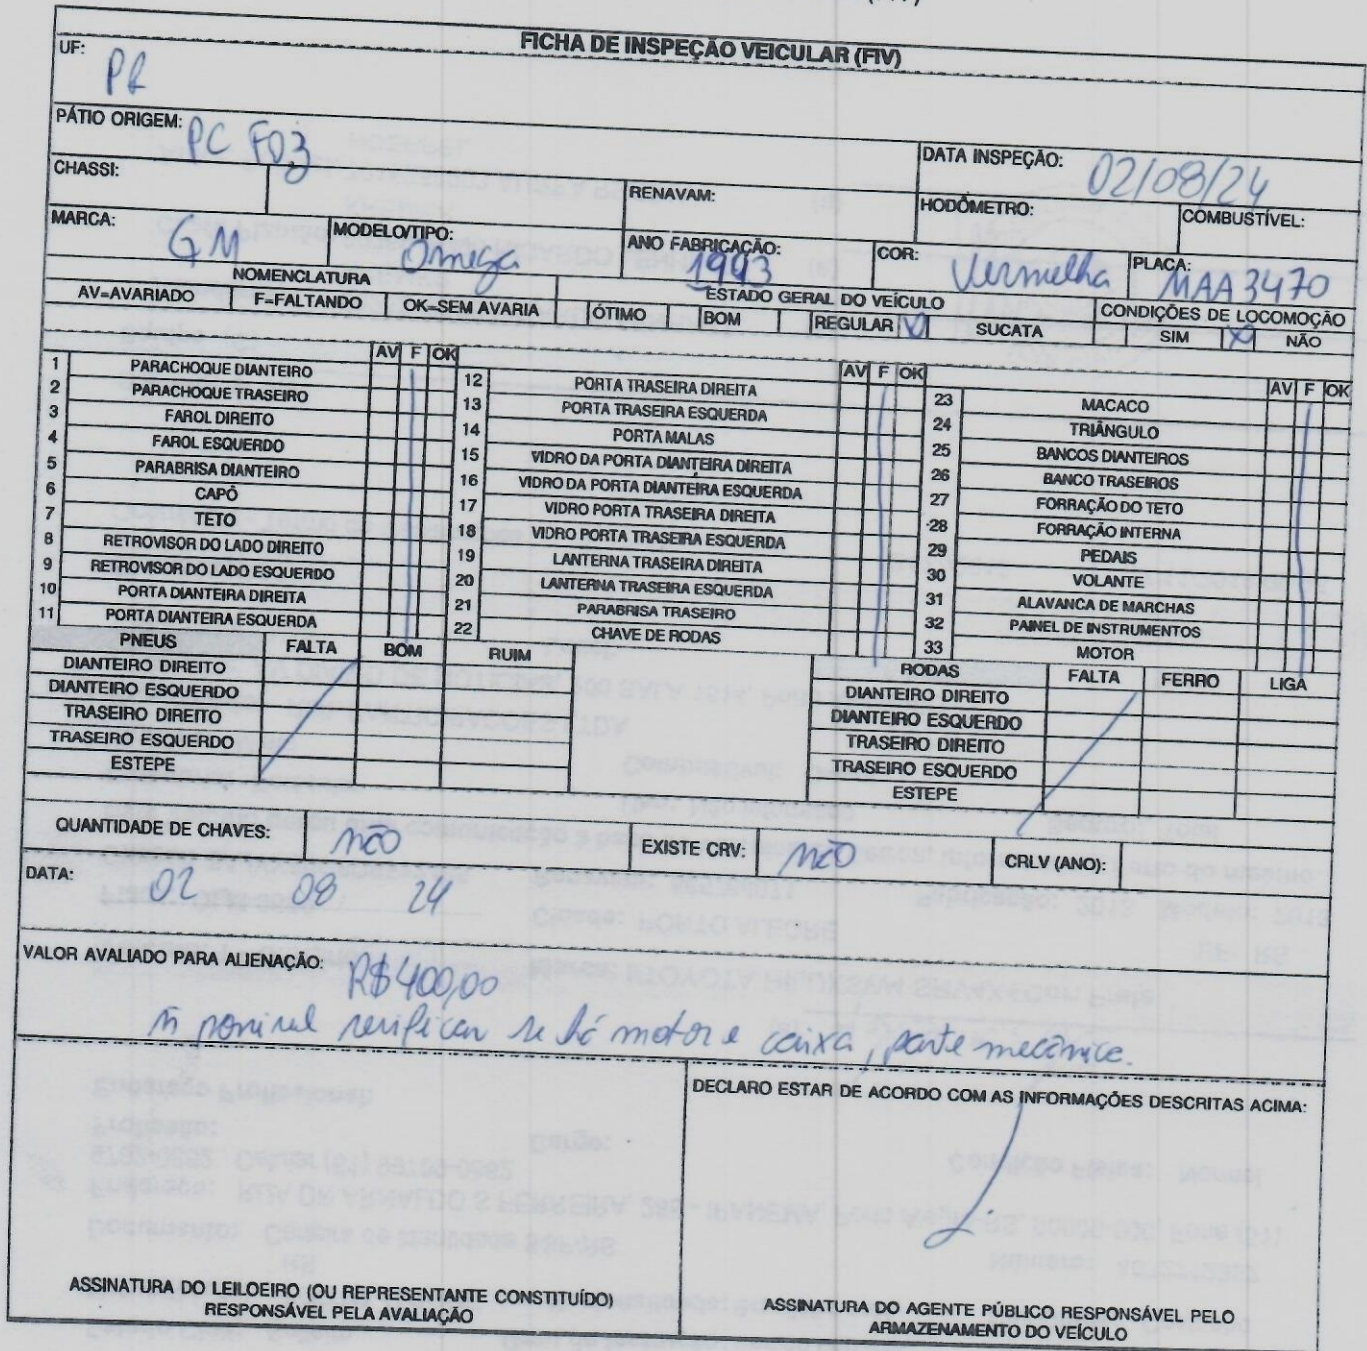 FICHA DE INSPEÇÃO VEICULAR (FIV)
UF: PR
PÁTIO ORIGEM: PC FOZ
DATA INSPEÇÃO: 02/08/24
CHASSI:
RENAVAM:
HODÔMETRO:
COMBUSTÍVEL:
MARCA: GM
MODELO/TIPO: Omega
ANO FABRICAÇÃO: 1993
COR: Vermelha
PLACA: MAA3470
NOMENCLATURA
ESTADO GERAL DO VEÍCULO
CONDIÇÕES DE LOCOMOÇÃO
AV=AVARIADO F=FALTANDO OK=SEM AVARIA ÓTIMO BOM REGULAR SUCATA SIM X NÃO
AV F OK
1 PARACHOQUE DIANTEIRO
2 PARACHOQUE TRASEIRO
3 FAROL DIREITO
4 FAROL ESQUERDO
5 PARABRISA DIANTEIRO
6 CAPÔ
7 TETO
8 RETROVISOR DO LADO DIREITO
9 RETROVISOR DO LADO ESQUERDO
10 PORTA DIANTEIRA DIREITA
11 PORTA DIANTEIRA ESQUERDA
AV F OK
12 PORTA TRASEIRA DIREITA
13 PORTA TRASEIRA ESQUERDA
14 PORTA MALAS
15 VIDRO DA PORTA DIANTEIRA DIREITA
16 VIDRO DA PORTA DIANTEIRA ESQUERDA
17 VIDRO PORTA TRASEIRA DIREITA
18 VIDRO PORTA TRASEIRA ESQUERDA
19 LANTERNA TRASEIRA DIREITA
20 LANTERNA TRASEIRA ESQUERDA
21 PARABRISA TRASEIRO
22 CHAVE DE RODAS
AV F OK
23 MACACO
24 TRIÂNGULO
25 BANCOS DIANTEIROS
26 BANCO TRASEIROS
27 FORRAÇÃO DO TETO
28 FORRAÇÃO INTERNA
29 PEDAIS
30 VOLANTE
31 ALAVANCA DE MARCHAS
32 PAINEL DE INSTRUMENTOS
33 MOTOR
PNEUS FALTA BOM RUIM
DIANTEIRO DIREITO
DIANTEIRO ESQUERDO
TRASEIRO DIREITO
TRASEIRO ESQUERDO
ESTEPE
RODAS FALTA FERRO LIGA
DIANTEIRO DIREITO
DIANTEIRO ESQUERDO
TRASEIRO DIREITO
TRASEIRO ESQUERDO
ESTEPE
QUANTIDADE DE CHAVES: não
EXISTE CRV: não
CRLV (ANO):
DATA: 02 08 24
VALOR AVALIADO PARA ALIENAÇÃO: R$400,00
verificar se há motor e caixa, parte mecânica.
DECLARO ESTAR DE ACORDO COM AS INFORMAÇÕES DESCRITAS ACIMA:
ASSINATURA DO LEILOEIRO (OU REPRESENTANTE CONSTITUÍDO)
RESPONSÁVEL PELA AVALIAÇÃO
ASSINATURA DO AGENTE PÚBLICO RESPONSÁVEL PELO
ARMAZENAMENTO DO VEÍCULO